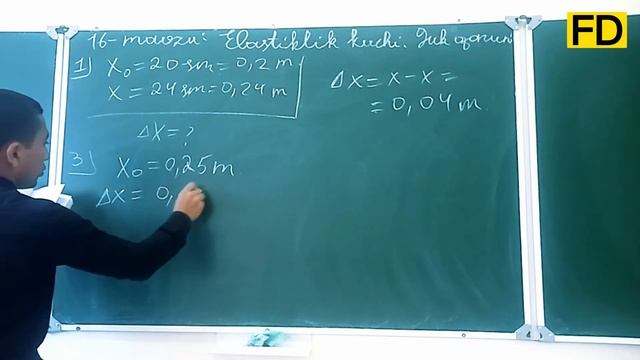 16-mavzu: Elastiklik kuchi. Guk qonuni
1) X₀ = 20 sm = 0,2 m
X = 24 sm = 0,24 m
ΔX = ?
ΔX = X - X =
= 0,04 m.
3) X₀ = 0,25 m.
ΔX = 0,
FD